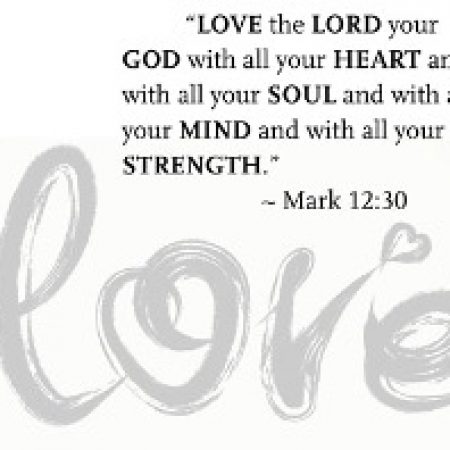 “LOVE the LORD your
GOD with all your HEART an
with all your SOUL and with a
your MIND and with all your
STRENGTH.”
~ Mark 12:30
love